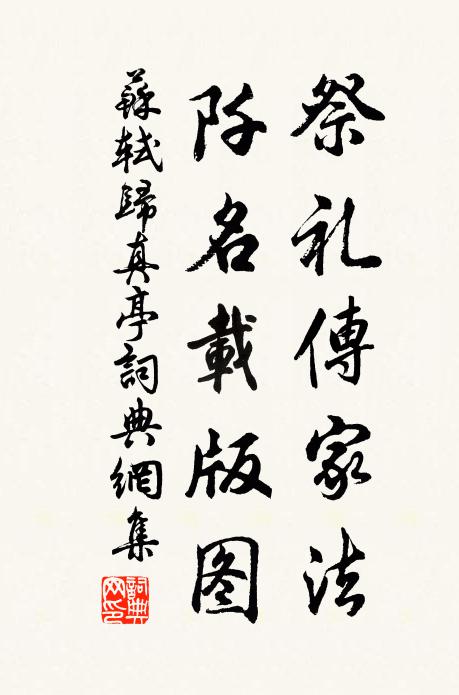 祭礼傳家法
阡名載版图
蘇軾歸真亭詞典網集
詞典網印